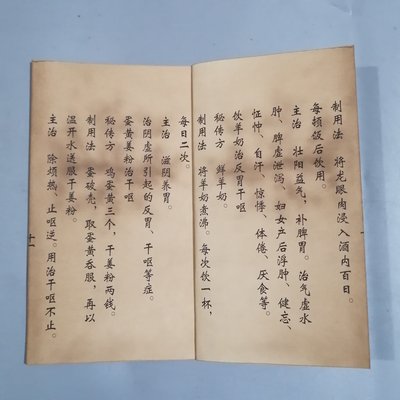 制用法　将龙眼肉浸入酒内百日。
每顿饭后饮用。
主治　壮阳益气，补脾胃。治气虚水
肿、脾虚泄泻、妇女产后浮肿、健忘、
怔忡、自汗、惊悸、体倦、厌食等。
饮羊奶治反胃干呕
秘传方　鲜羊奶。
制用法　将羊奶煮沸。每次饮一杯，
每日二次。
主治　滋阴养胃。
治阴虚所引起的反胃、干呕等症。
蛋黄姜粉治干呕
秘传方　鸡蛋黄三个，干姜粉两钱。
制用法　蛋破壳，取蛋黄吞服，再以
温开水送服干姜粉。
主治　除烦热，止呕逆。用治干呕不止。
十一